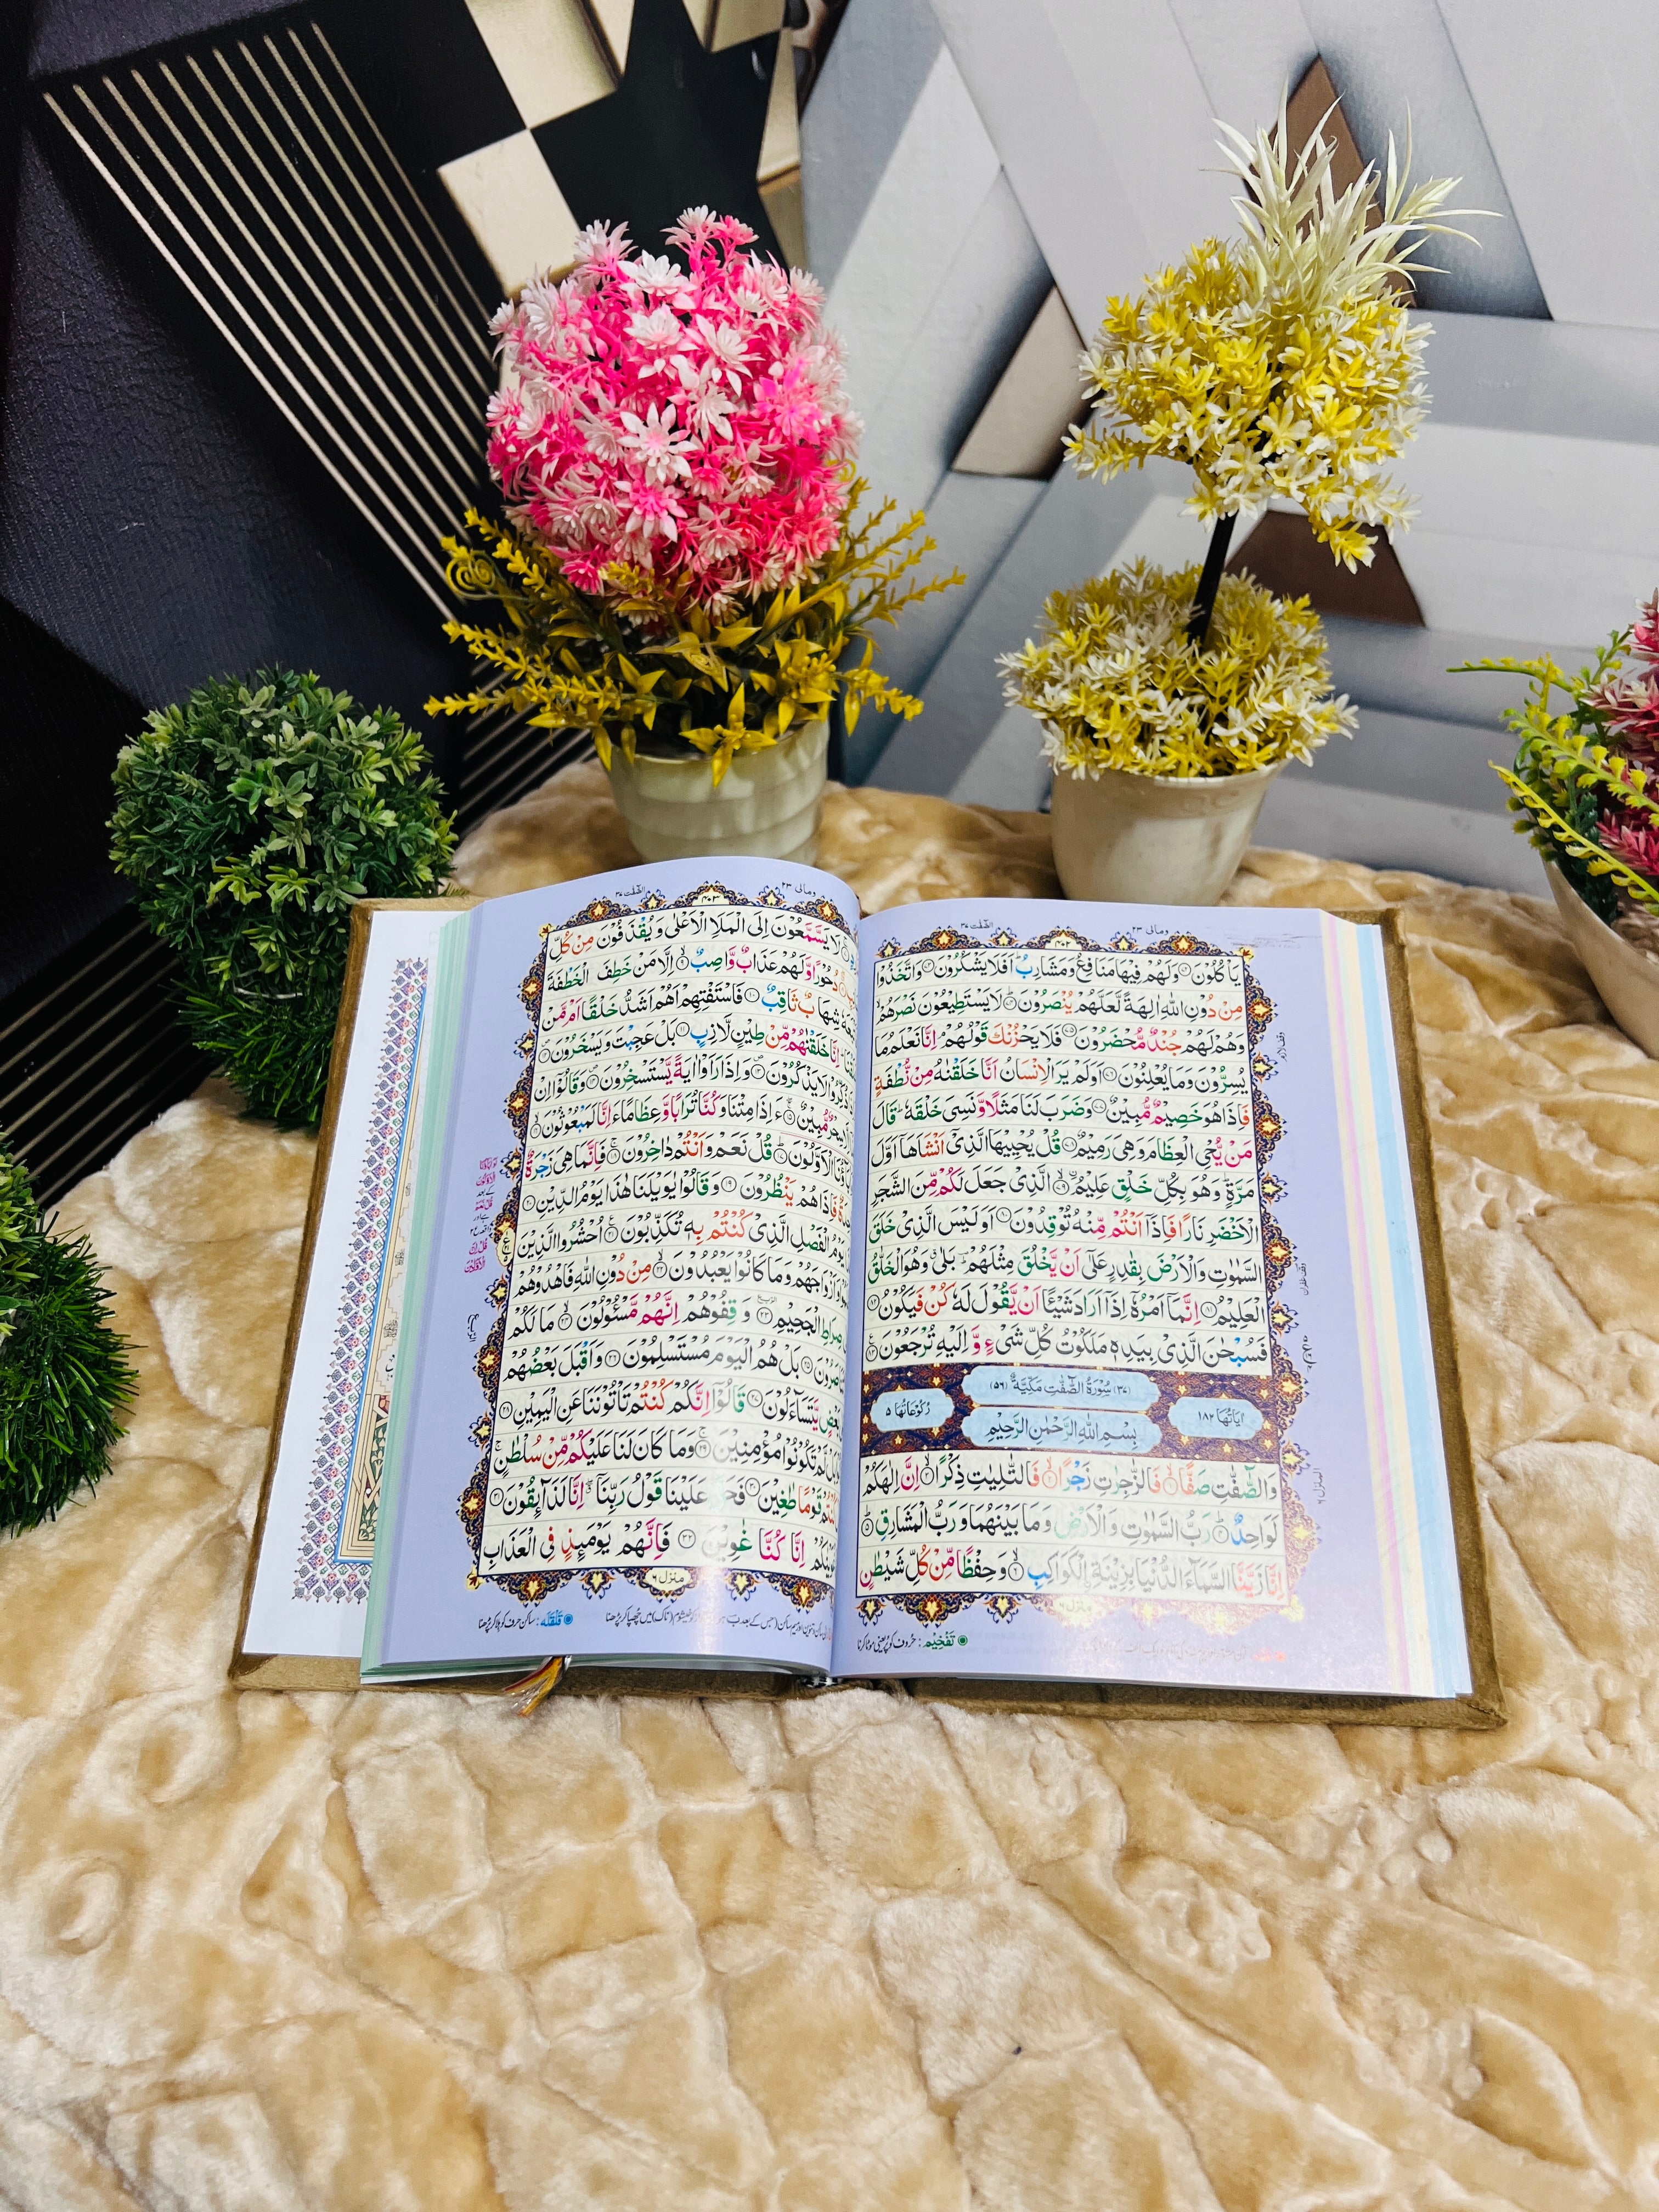 ومالی ٢٣
٤٠٢
الصّٰفّٰت ٣٧
يَاْكُلُوْنَ وَلَهُمْ فِيْهَا مَنَافِعُ وَمَشَارِبُ ؕ اَفَلَا يَشْكُرُوْنَ وَاتَّخَذُوْا
مِنْ دُوْنِ اللّٰهِ اٰلِهَةً لَّعَلَّهُمْ يُنْصَرُوْنَ لَا يَسْتَطِيْعُوْنَ نَصْرَهُمْ
وَهُمْ لَهُمْ جُنْدٌ مُّحْضَرُوْنَ فَلَا يَحْزُنْكَ قَوْلُهُمْ اِنَّا نَعْلَمُ مَا
يُسِرُّوْنَ وَمَا يُعْلِنُوْنَ اَوَلَمْ يَرَ الْاِنْسَانُ اَنَّا خَلَقْنٰهُ مِنْ نُّطْفَةٍ
فَاِذَا هُوَ خَصِيْمٌ مُّبِيْنٌ وَضَرَبَ لَنَا مَثَلًا وَّنَسِيَ خَلْقَهٗ ؕ قَالَ
مَنْ يُّحْيِ الْعِظَامَ وَهِيَ رَمِيْمٌ قُلْ يُحْيِيْهَا الَّذِيْٓ اَنْشَاَهَآ اَوَّلَ
مَرَّةٍ ؕ وَهُوَ بِكُلِّ خَلْقٍ عَلِيْمٌ الَّذِيْ جَعَلَ لَكُمْ مِّنَ الشَّجَرِ
الْاَخْضَرِ نَارًا فَاِذَآ اَنْتُمْ مِّنْهُ تُوْقِدُوْنَ اَوَلَيْسَ الَّذِيْ خَلَقَ
السَّمٰوٰتِ وَالْاَرْضَ بِقٰدِرٍ عَلٰٓى اَنْ يَّخْلُقَ مِثْلَهُمْ ؕ بَلٰى وَهُوَ الْخَلّٰقُ
الْعَلِيْمُ اِنَّمَآ اَمْرُهٗٓ اِذَآ اَرَادَ شَيْئًا اَنْ يَّقُوْلَ لَهٗ كُنْ فَيَكُوْنُ
فَسُبْحٰنَ الَّذِيْ بِيَدِهٖ مَلَكُوْتُ كُلِّ شَيْءٍ وَّاِلَيْهِ تُرْجَعُوْنَ
(٣٧) سُوْرَةُ الصّٰفّٰتِ مَكِّيَّةٌ (٥٦)
اٰيَاتُهَا ١٨٢
بِسْمِ اللّٰهِ الرَّحْمٰنِ الرَّحِيْمِ
رُكُوْعَاتُهَا ٥
وَالصّٰٓفّٰتِ صَفًّا فَالزّٰجِرٰتِ زَجْرًا فَالتّٰلِيٰتِ ذِكْرًا اِنَّ اِلٰهَكُمْ
لَوَاحِدٌ رَبُّ السَّمٰوٰتِ وَالْاَرْضِ وَمَا بَيْنَهُمَا وَرَبُّ الْمَشَارِقِ
اِنَّا زَيَّنَّا السَّمَآءَ الدُّنْيَا بِزِيْنَةِ ۨالْكَوَاكِبِ وَحِفْظًا مِّنْ كُلِّ شَيْطٰنٍ
منزل ٦
تَفْخِيْم : حُروف کو پُر یعنی موٹا کرنا
ومالی ٢٣
٤٠٣
الصّٰفّٰت ٣٧
لَا يَسَّمَّعُوْنَ اِلَى الْمَلَاِ الْاَعْلٰى وَيُقْذَفُوْنَ مِنْ كُلِّ
دُحُوْرًا وَّلَهُمْ عَذَابٌ وَّاصِبٌ اِلَّا مَنْ خَطِفَ الْخَطْفَةَ
شِهَابٌ ثَاقِبٌ فَاسْتَفْتِهِمْ اَهُمْ اَشَدُّ خَلْقًا اَمْ مَّنْ
اِنَّا خَلَقْنٰهُمْ مِّنْ طِيْنٍ لَّازِبٍ بَلْ عَجِبْتَ وَيَسْخَرُوْنَ
ذُكِّرُوْا لَا يَذْكُرُوْنَ وَاِذَا رَاَوْا اٰيَةً يَّسْتَسْخِرُوْنَ وَقَالُوْٓا اِنْ
مُّبِيْنٌ ءَاِذَا مِتْنَا وَكُنَّا تُرَابًا وَّعِظَامًا ءَاِنَّا لَمَبْعُوْثُوْنَ
الْاَوَّلُوْنَ قُلْ نَعَمْ وَاَنْتُمْ دَاخِرُوْنَ فَاِنَّمَا هِيَ زَجْرَةٌ
فَاِذَا هُمْ يَنْظُرُوْنَ وَقَالُوْا يٰوَيْلَنَا هٰذَا يَوْمُ الدِّيْنِ
يَوْمُ الْفَصْلِ الَّذِيْ كُنْتُمْ بِهٖ تُكَذِّبُوْنَ اُحْشُرُوا الَّذِيْنَ
وَاَزْوَاجَهُمْ وَمَا كَانُوْا يَعْبُدُوْنَ مِنْ دُوْنِ اللّٰهِ فَاهْدُوْهُمْ
صِرَاطِ الْجَحِيْمِ وَقِفُوْهُمْ اِنَّهُمْ مَّسْئُوْلُوْنَ مَا لَكُمْ
بَلْ هُمُ الْيَوْمَ مُسْتَسْلِمُوْنَ وَاَقْبَلَ بَعْضُهُمْ
يَّتَسَآءَلُوْنَ قَالُوْٓا اِنَّكُمْ كُنْتُمْ تَاْتُوْنَنَا عَنِ الْيَمِيْنِ
لَّمْ تَكُوْنُوْا مُؤْمِنِيْنَ وَمَا كَانَ لَنَا عَلَيْكُمْ مِّنْ سُلْطٰنٍ
قَوْمًا طٰغِيْنَ فَحَقَّ عَلَيْنَا قَوْلُ رَبِّنَآ اِنَّا لَذَآئِقُوْنَ
اِنَّا كُنَّا غٰوِيْنَ فَاِنَّهُمْ يَوْمَئِذٍ فِي الْعَذَابِ
منزل ٦
قَلْقَلَه : ساکن حرف کو ہلا کر پڑھنا